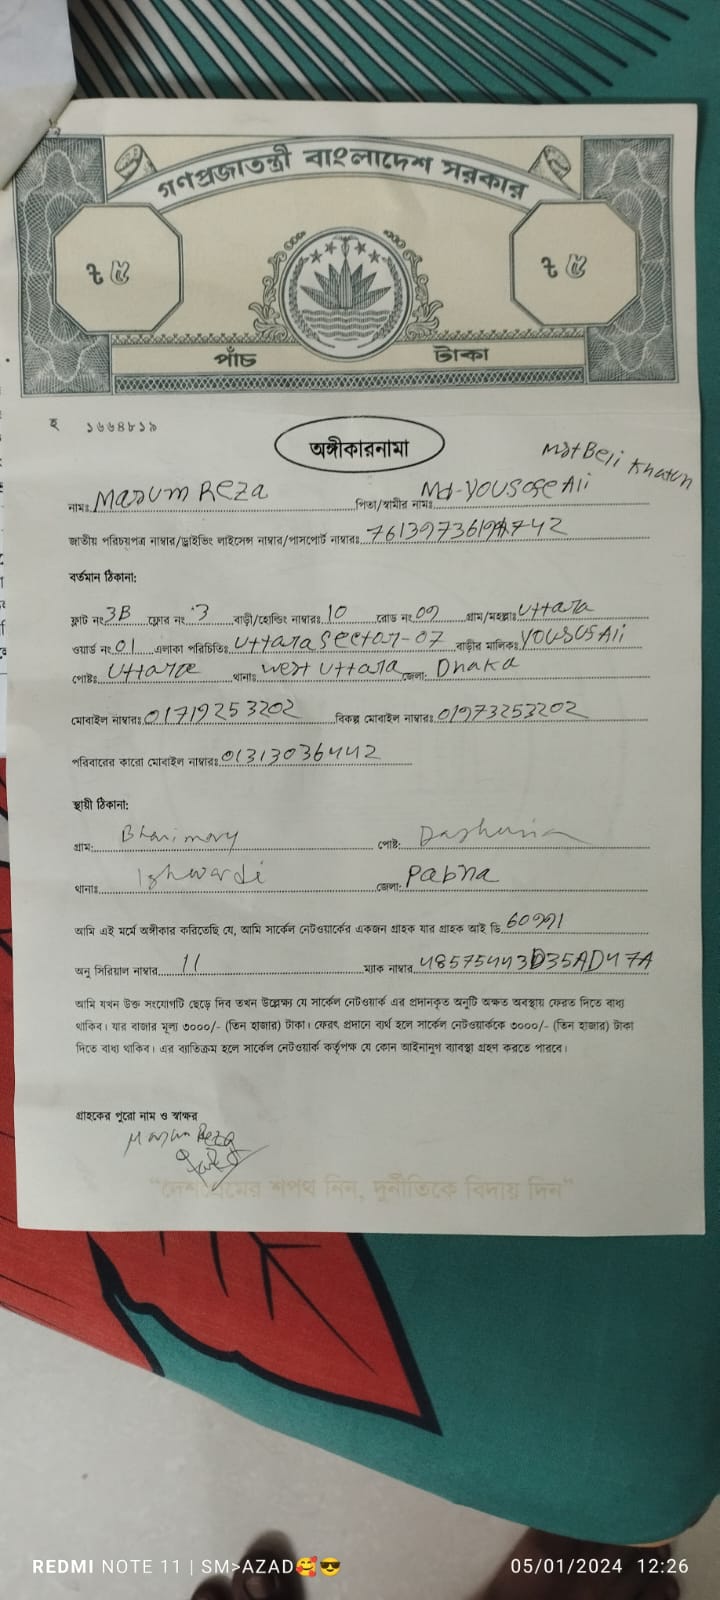 গণপ্রজাতন্ত্রী বাংলাদেশ সরকার
৳ ৫ ৳ ৫
পাঁচ টাকা
হ ১৬৬৪৮১৯
অঙ্গীকারনামা
Mst Beli Khatun
নামঃ Masum Reza পিতা/স্বামীর নামঃ Md-Yousose Ali
জাতীয় পরিচয়পত্র নাম্বার/ড্রাইভিং লাইসেন্স নাম্বার/পাসপোর্ট নাম্বারঃ
বর্তমান ঠিকানা:
ফ্লাট নং 3B ফ্লোর নং 3 বাড়ী/হোল্ডিং নাম্বারঃ 10 রোড নং 09 গ্রাম/মহল্লাঃ Uttara
ওয়ার্ড নং 01 এলাকা পরিচিতিঃ Uttara Sector-07 বাড়ীর মালিকঃ Yousus Ali
পোষ্টঃ Uttara থানাঃ West Uttara জেলা: Dhaka
মোবাইল নাম্বারঃ 01719253202 বিকল্প মোবাইল নাম্বারঃ 01973253202
পরিবারের কারো মোবাইল নাম্বারঃ 01313036442
স্থায়ী ঠিকানা:
গ্রাম: পোষ্ট: Dashuria
থানাঃ Ishwardi জেলা: Pabna
আমি এই মর্মে অঙ্গীকার করিতেছি যে, আমি সার্কেল নেটওয়ার্কের একজন গ্রাহক যার গ্রাহক আই ডি 60991
অনু সিরিয়াল নাম্বার 11 ম্যাক নাম্বার 48575443D35AD47A
আমি যখন উক্ত সংযোগটি ছেড়ে দিব তখন উল্লেখ্য যে সার্কেল নেটওয়ার্ক এর প্রদানকৃত অনুটি অক্ষত অবস্থায় ফেরত দিতে বাধ্য
থাকিব। যার বাজার মূল্য ৩০০০/- (তিন হাজার) টাকা। ফেরৎ প্রদানে ব্যর্থ হলে সার্কেল নেটওয়ার্ককে ৩০০০/- (তিন হাজার) টাকা
দিতে বাধ্য থাকিব। এর ব্যতিক্রম হলে সার্কেল নেটওয়ার্ক কর্তৃপক্ষ যে কোন আইনানুগ ব্যাবস্থা গ্রহণ করতে পারবে।
গ্রাহকের পুরো নাম ও স্বাক্ষর
Masum Reza
"দেশপ্রেমের শপথ নিন, দুর্নীতিকে বিদায় দিন"
REDMI NOTE 11 | SM>AZAD🥰😎 05/01/2024 12:26